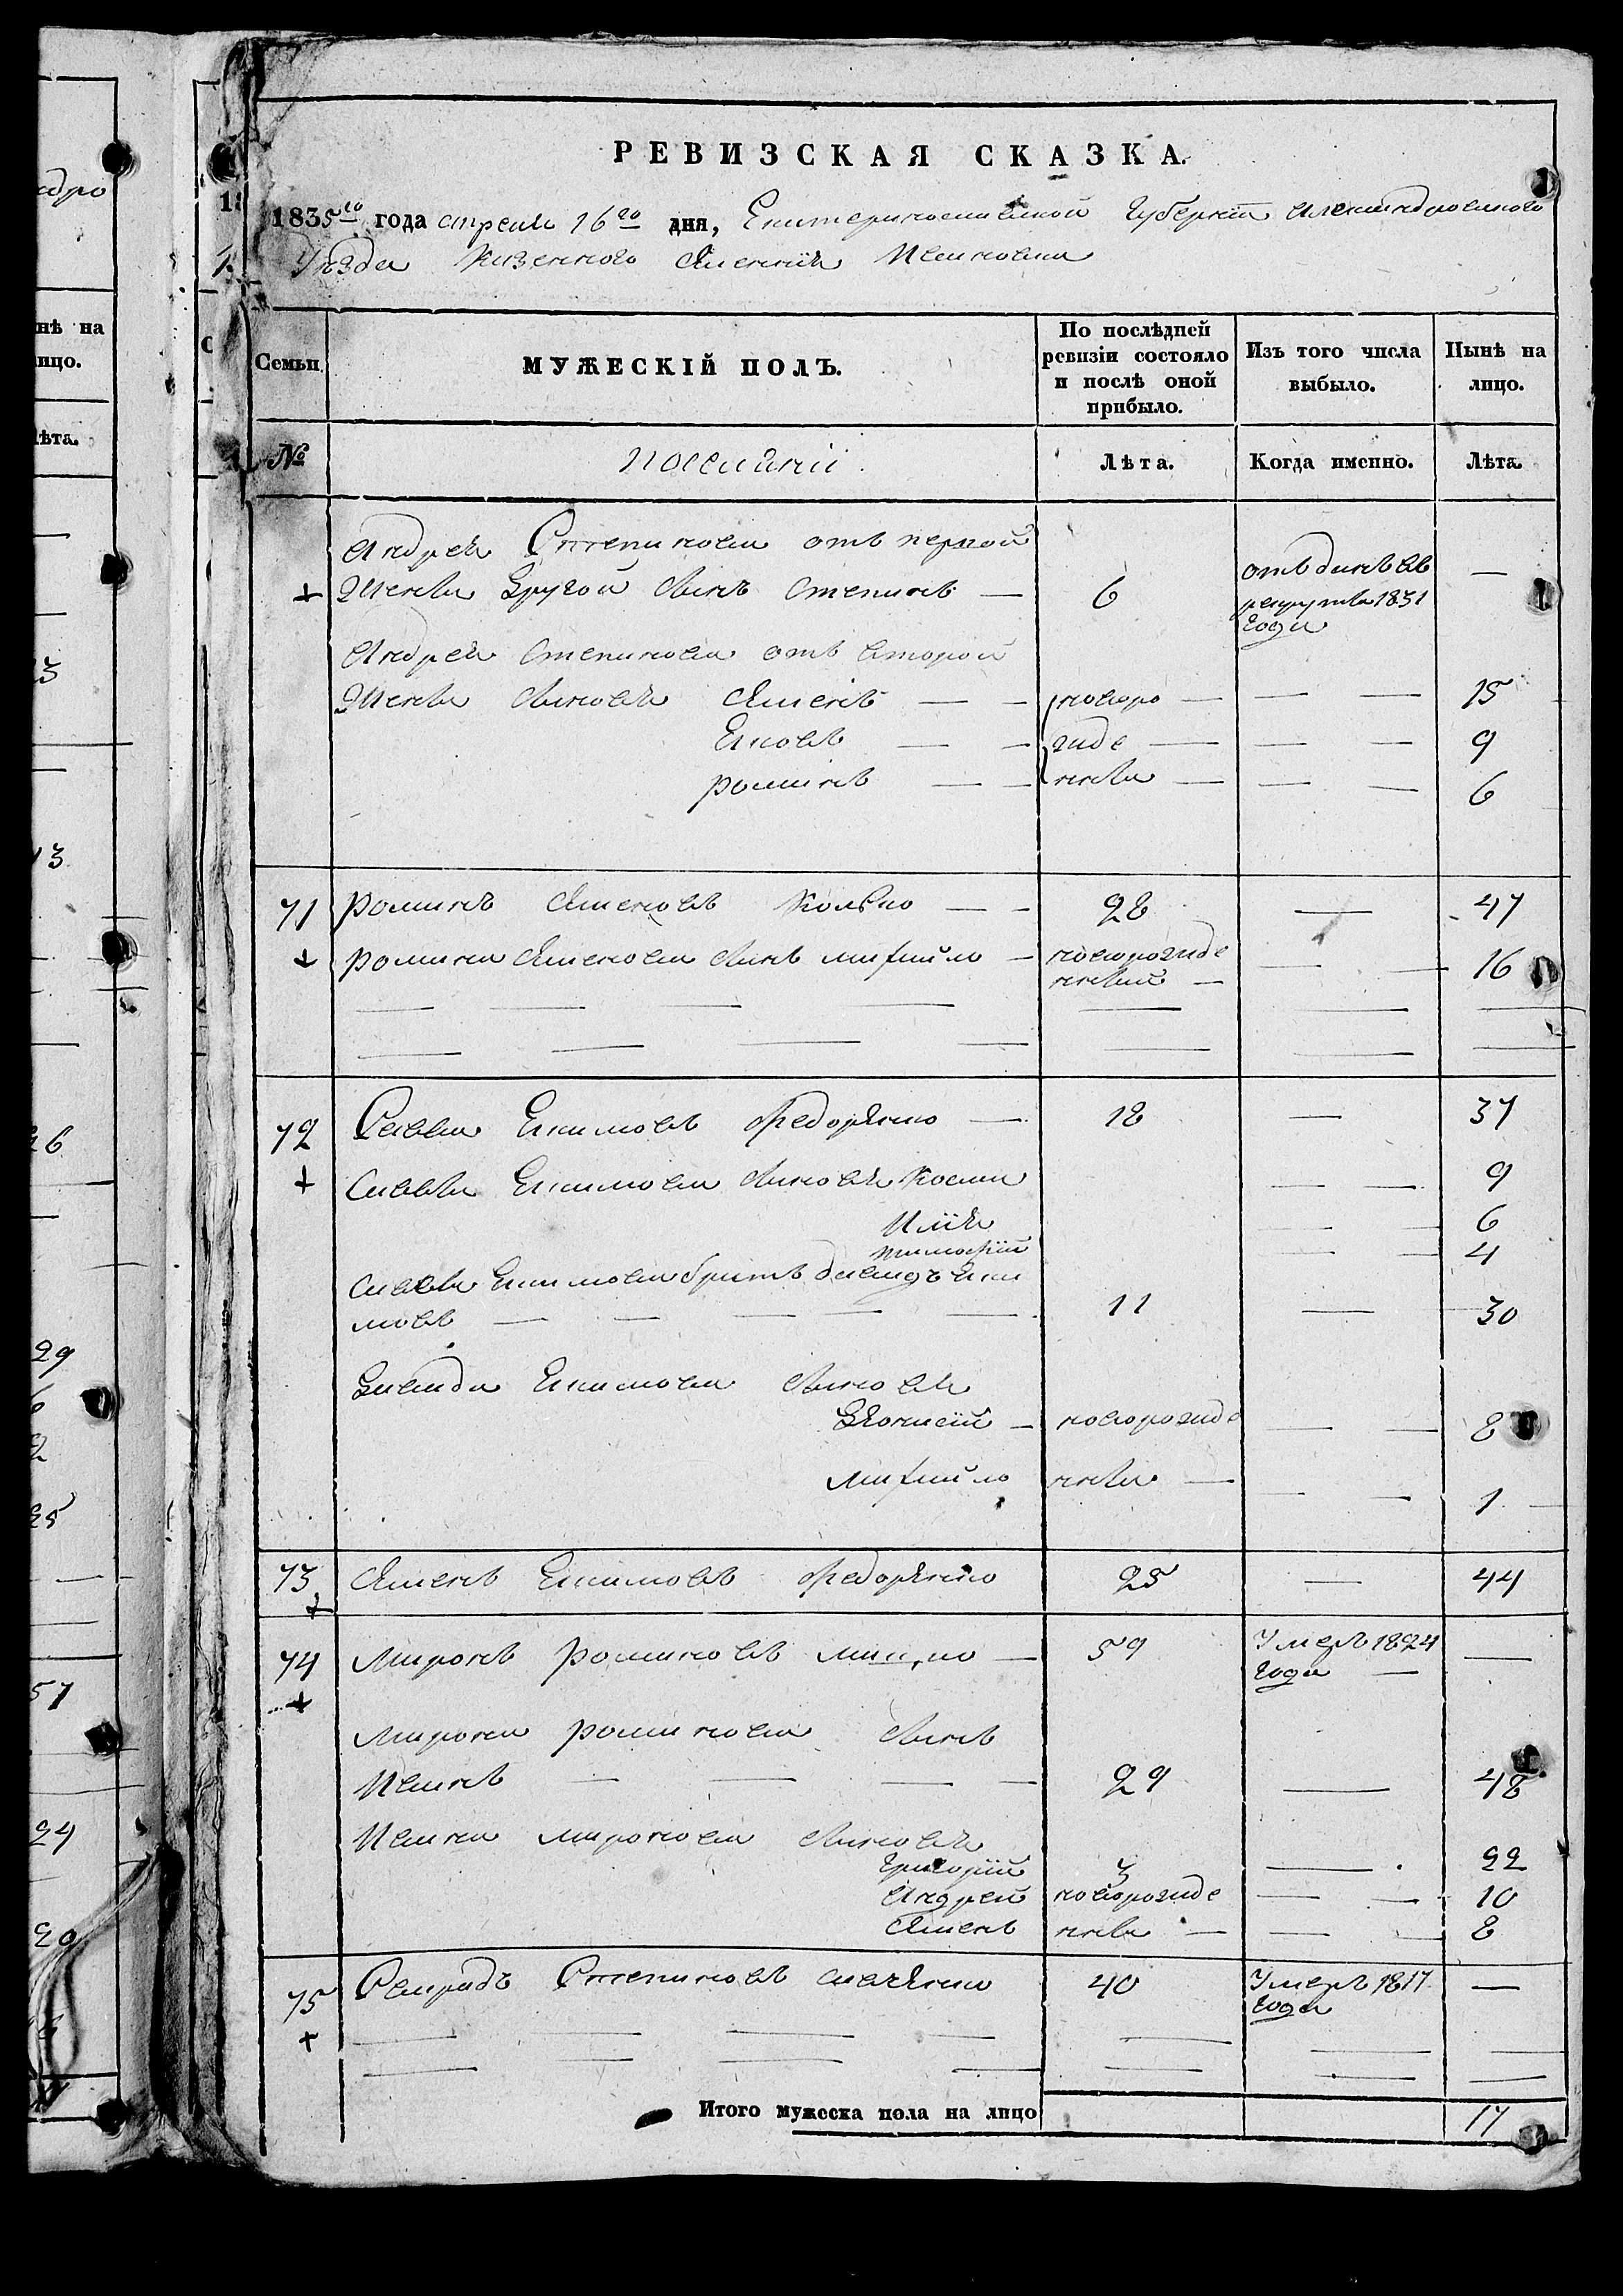 РЕВИЗСКАЯ СКАЗКА.
1835го года апреля 16го дня, Екатеринославской Губернiи Александровского
Уезда казенного селенiя Ивановка
Семьи.
МУЖЕСКІЙ ПОЛЪ.
По послѣдней ревизіи состояло и послѣ оной прибыло.
Изъ того числа выбыло.
Нынѣ на лицо.
№
поселяни
Лѣта.
Когда именно.
Лѣта.
Андрея Степанова отъ первой
жены другой сынъ Степанъ — 6 отъданъ въ рекруты 1831 года —
Андрея Степанова отъ второй
жены сыновья Семенъ — — новоро — — — 15
Яковъ — — жде — — — 9
романъ — — нны — — — 6
71 романъ Семеновъ — — 28 — 47
романа Семенова сынъ михайло — новорожде нный — — 16
72 Савва Екимовъ Федоренко — 18 — 37
Саввы Екимова сыновья Косма — — 9
Илiя — — 6
тимофiй — — 4
Саввы Екимова братъ давидъ Еки
мовъ — — — — 11 — 30
Давида Екимова сыновья
— новорожде — — 8
михайло нны — — — 1
73 Семенъ Екимовъ Федоренко 25 — 44
74 Миронъ романовъ — 59 Умеръ 1824 года — —
Мирона романова сынъ
Иванъ — — — — 29 — 48
Ивана миронова сыновья
григорiй 3 — 22
Андрей новорожде — — 10
Семенъ нны — — — 8
75 Степановъ 40 Умеръ 1817 года —
Итого мужеска пола на лицо 17